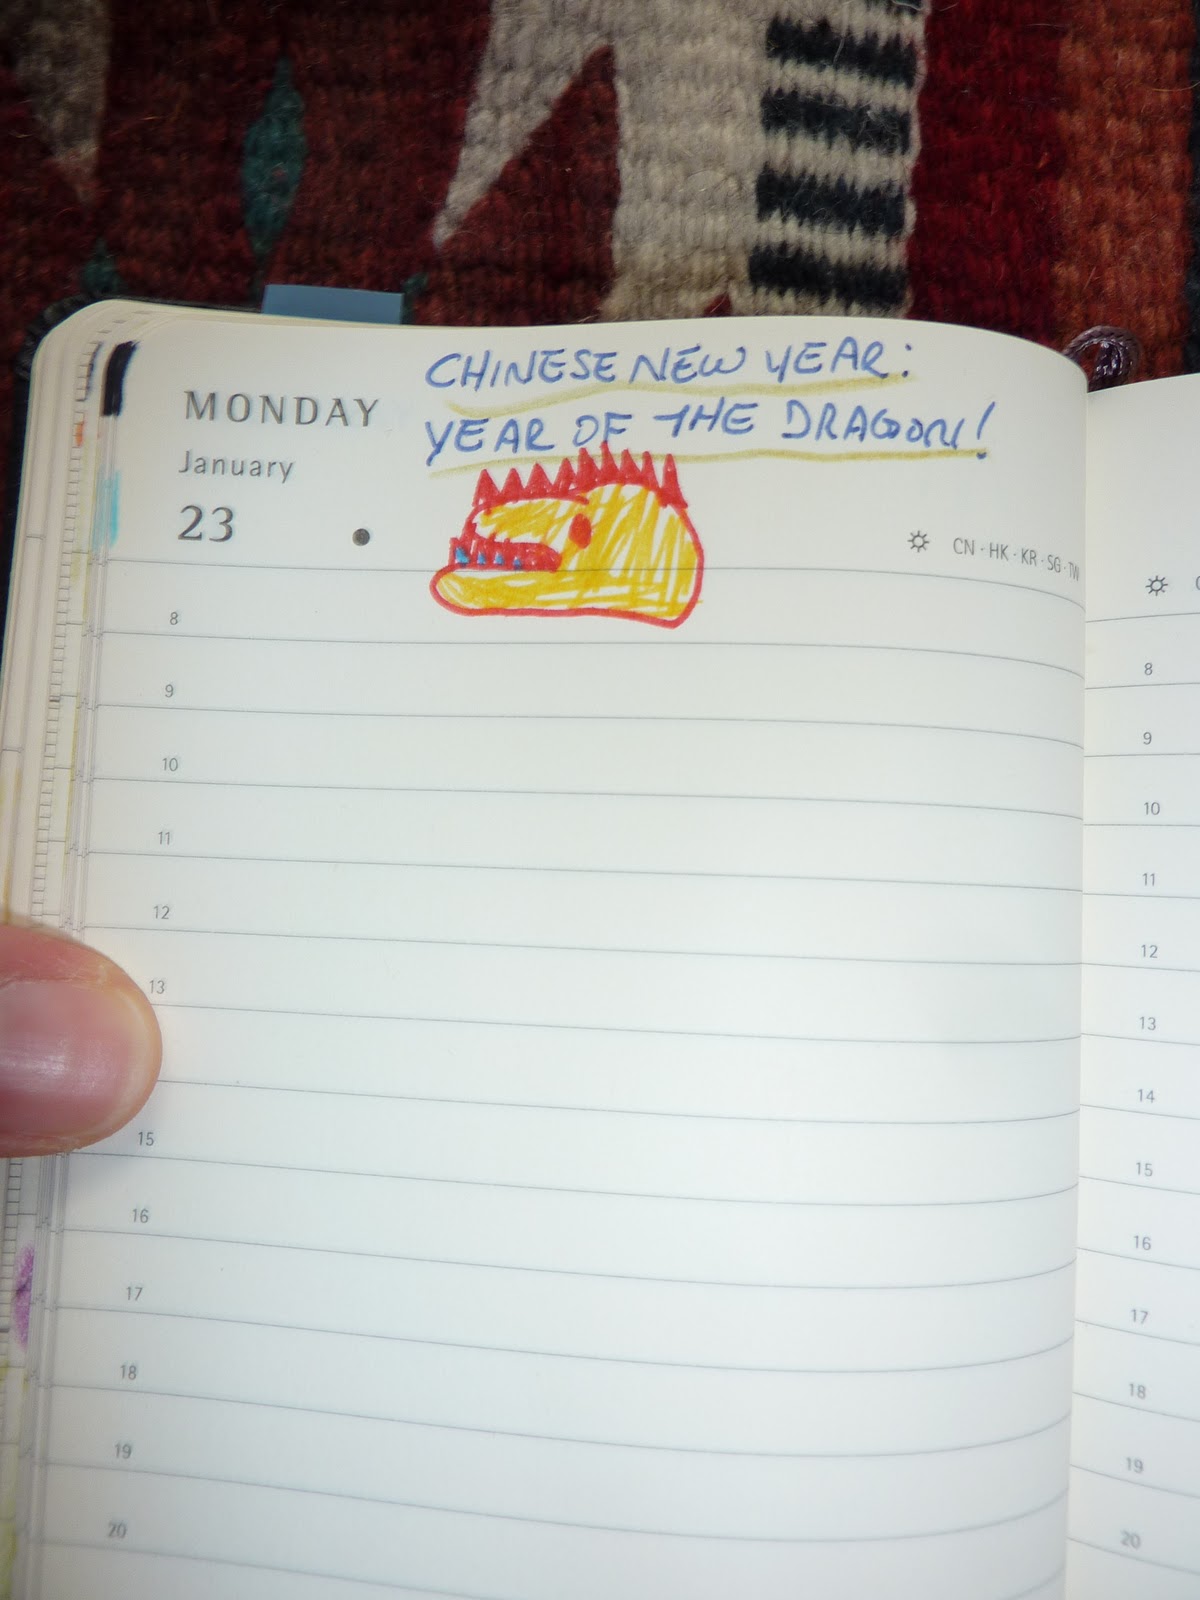 CHINESE NEW YEAR:
YEAR OF THE DRAGON!
MONDAY
January
23
CN · HK · KR · SG · TW
8
9
10
11
12
13
15
16
17
18
19
20
8
9
10
11
12
13
14
15
16
17
18
19
20